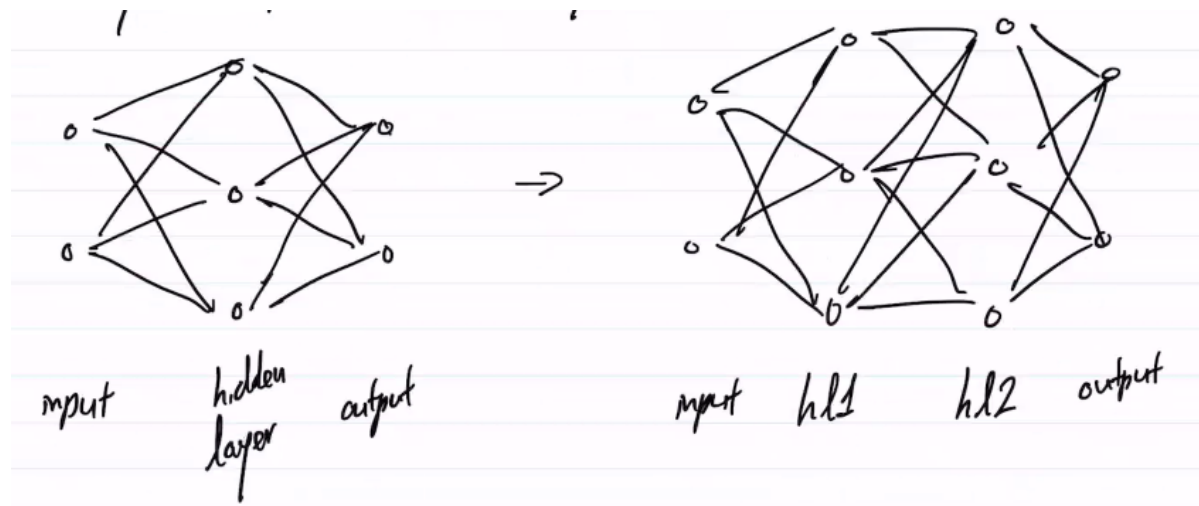 input
hidden
layer
output
input
hl1
hl2
output